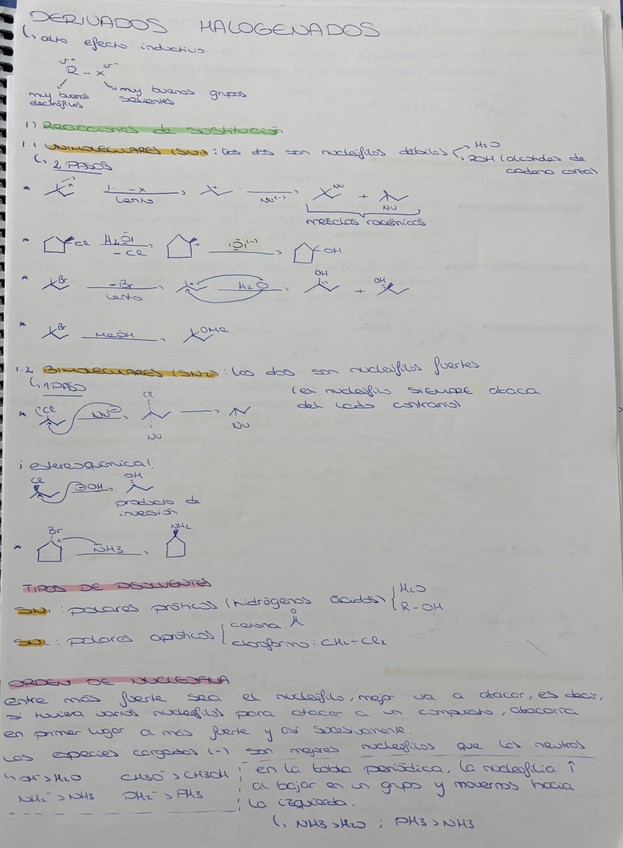 DERIVADOS HALOGENADOS
↳ alto efecto inductivo
δ+ δ-
R - X
muy buenos electrófilos
muy buenos grupos salientes
1) REACCIONES de SUSTITUCIÓN
1.1 UNIMOLECULARES (SN1): Los dos son nucleófilos débiles H2O
ROH (alcoholes de cadena corta)
↳ 2 PASOS
* X - X Lento Nu(-) Nu + Nu
mezclas racémicas
* Cl H2O - Cl + OH
* Br - Br Lento + H2O OH + OH
* Br MeOH OMe
1.2 BIMOLECULARES (SN2): Los dos son nucleófilos fuertes
↳ 1 PASO (el nucleófilo SIEMPRE ataca
del lado contrario)
* Cl Nu Cl Nu Nu
¡estereoquímica!
Cl OH OH
producto de
inversión
* Br NH3 NH2
TIPOS DE DISOLVENTES
SN1: polares próticos (hidrógenos ácidos) H2O
R-OH
SN2: polares apróticos cetona: O
cloroformo: CH2-Cl2
ORDEN DE NUCLEOFILIA
entre más fuerte sea el nucleófilo, mejor va a atacar, es decir,
si tuviera varios nucleófilos para atacar a un compuesto, atacaría
en primer lugar al más fuerte y así sucesivamente.
Las especies cargadas (-) son mejores nucleófilos que las neutras
↳ OH- > H2O CH3O- > CH3OH
NH2- > NH3 PH2- > PH3
en la tabla periódica, la nucleofilia ↑
al bajar en un grupo y movernos hacia
la izquierda.
↳ NH3 > H2O ; PH3 > NH3